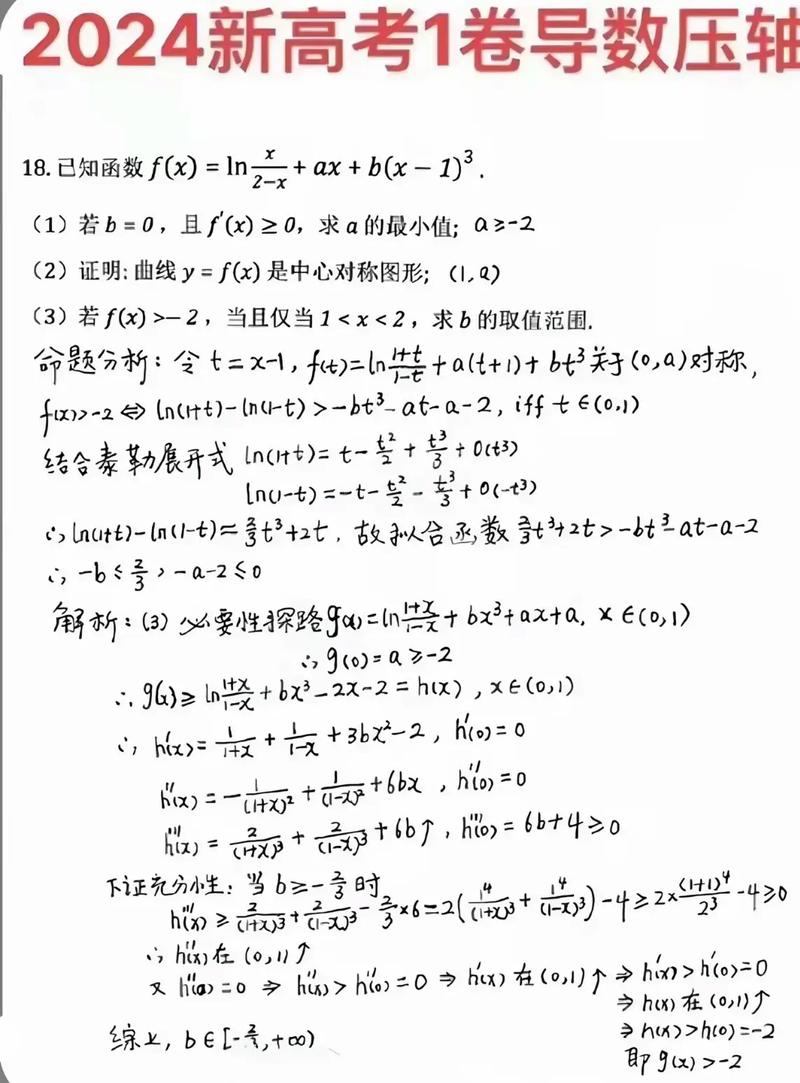 2024新高考1卷导数压轴
18. 已知函数 f(x) = ln x/(2−x) + ax + b(x − 1)³.
（1）若 b = 0，且 f′(x) ≥ 0，求 a 的最小值； a≥-2
（2）证明: 曲线 y = f(x) 是中心对称图形； (1,a)
（3）若 f(x) >− 2，当且仅当 1 < x < 2，求 b 的取值范围.
命题分析：令 t = x-1, f(t)=ln (1+t)/(1-t) + a(t+1) + bt³ 关于(0,a)对称,
f(x)>-2 ⇔ ln(1+t)-ln(1-t) > -bt³-at-a-2, iff t∈(0,1)
结合泰勒展开式 ln(1+t)= t - t²/2 + t³/3 + o(t³)
ln(1-t) = -t - t²/2 - t³/3 + o(-t³)
∴ ln(1+t)-ln(1-t)≈ 2/3t³+2t, 故拟合函数 2/3t³+2t > -bt³-at-a-2
∴ -b ≤ 2/3, -a-2≤0
解析：(3) 必要性探路 g(x)=ln (1+x)/(1-x) + bx³+ax+a, x∈(0,1)
∴ g(0)=a≥-2
∴ g(x)≥ ln (1+x)/(1-x) + bx³-2x-2 = h(x), x∈(0,1)
∴ h′(x)= 1/(1+x) + 1/(1-x) + 3bx²-2, h′(0)=0
h″(x) = - 1/(1+x)² + 1/(1-x)² + 6bx, h″(0)=0
h‴(x) = 2/(1+x)³ + 2/(1-x)³ + 6b↑, h‴(0)= 6b+4≥0
下证充分性：当 b≥-2/3 时
h‴(x) ≥ 2/(1+x)³ + 2/(1-x)³ - 2/3×6=2(1⁴/(1+x)³ + 1⁴/(1-x)³)-4≥2×(1+1)⁴/2³-4≥0
∴ h″(x)在(0,1)↑
又 h″(0)=0 ⇒ h″(x)>h″(0)=0 ⇒ h′(x)在(0,1)↑ ⇒ h′(x)>h′(0)=0
⇒ h(x)在(0,1)↑
⇒ h(x)>h(0)=-2
即 g(x)>-2
综上, b∈[-2/3,+∞)